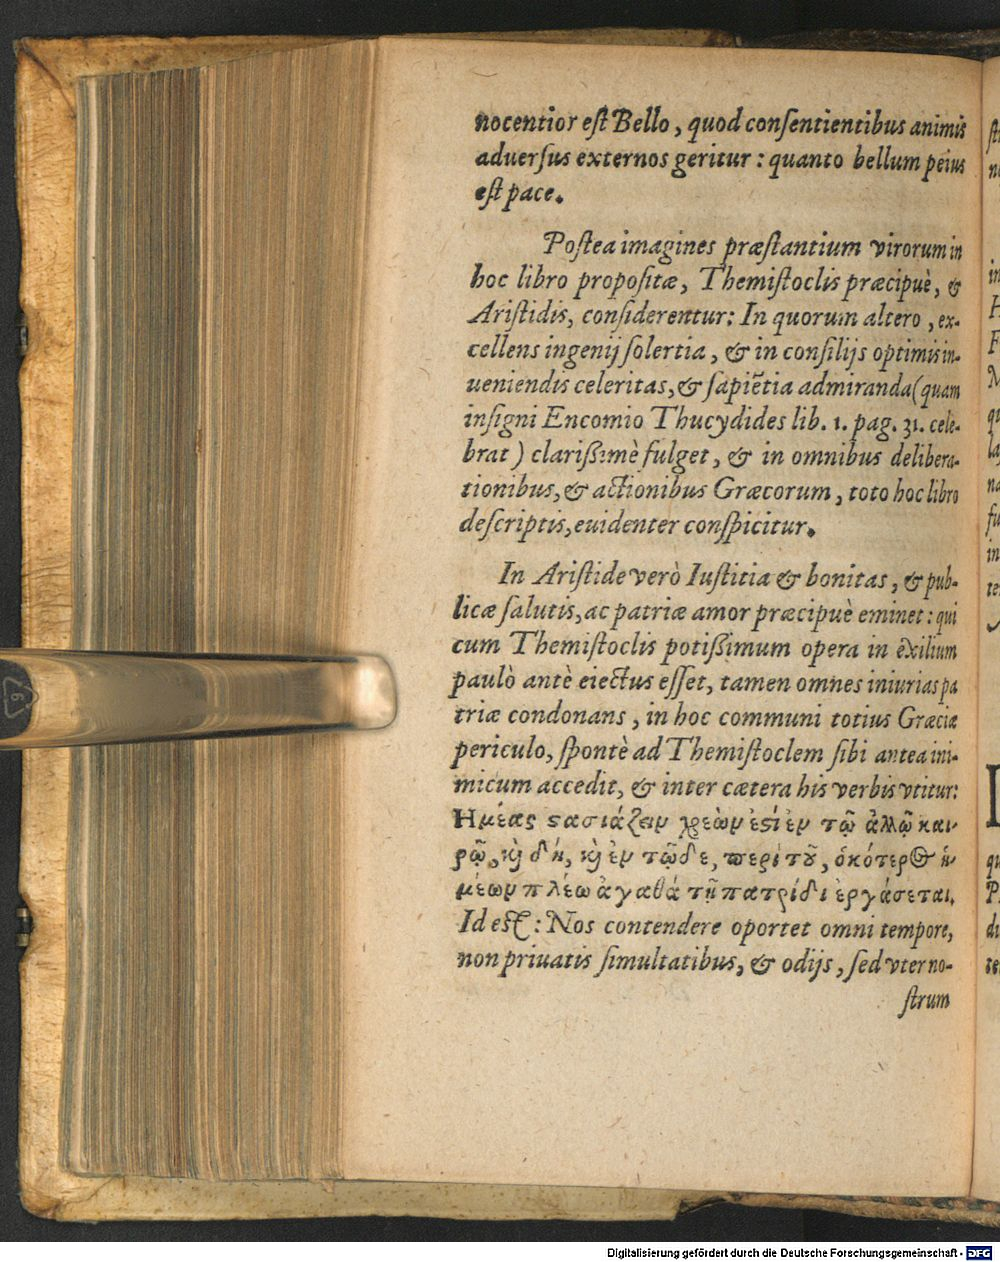 nocentior eſt Bello, quod conſentientibus animis
aduerſus externos geritur: quanto bellum peius
eſt pace.
Poſtea imagines præſtantium virorum in
hoc libro propoſitæ, Themiſtoclis præcipuè, &
Ariſtidis, conſiderentur: In quorum altero, ex-
cellens ingenij ſolertia, & in conſilijs optimis in-
ueniendis celeritas, & ſapiẽtia admiranda (quam
inſigni Encomio Thucydides lib. 1. pag. 31. cele-
brat) clarißimè fulget, & in omnibus delibera-
tionibus, & actionibus Græcorum, toto hoc libro
deſcriptis, euidenter conſpicitur.
In Ariſtide verò Iuſtitia & bonitas, & pub-
licæ ſalutis, ac patriæ amor præcipuè eminet: qui
cum Themiſtoclis potißimum opera in exilium
paulò antè eiectus eſſet, tamen omnes iniurias pa
triæ condonans, in hoc communi totius Græciæ
periculo, ſpontè ad Themiſtoclem ſibi antea ini-
micum accedit, & inter cætera his verbis vtitur:
Ημέας ϛασιάζειν χρεὼν ἐϛί ἐν τῷ ἀλλῷ και
ρῷ, κὶ δὴ, κὶ ἐν τῷδε, περὶ τȣ͂, ὁκότερος ἡ-
μέων πλέω ἀγαθά τῇ πατρίδι ἐργάσεται.
Id eſt: Nos contendere oportet omni tempore,
non priuatis ſimultatibus, & odijs, ſed vter no-
ſtrum
Digitalisierung gefördert durch die Deutsche Forschungsgemeinschaft - DFG